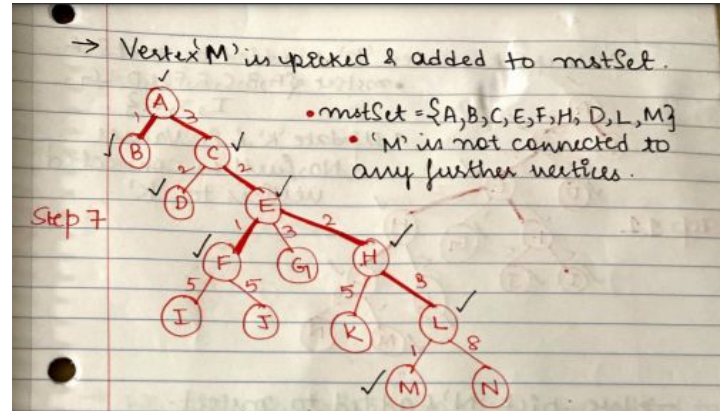 → Vertex 'M' is picked & added to mstSet.
• mstSet = {A,B,C,E,F,H, D,L,M}
• 'M' is not connected to
any further vertices.
Step 7
A
1 3
B C
2 2
D E
1 3 2
F G H
5 5 5 3
I J K L
1 8
M N